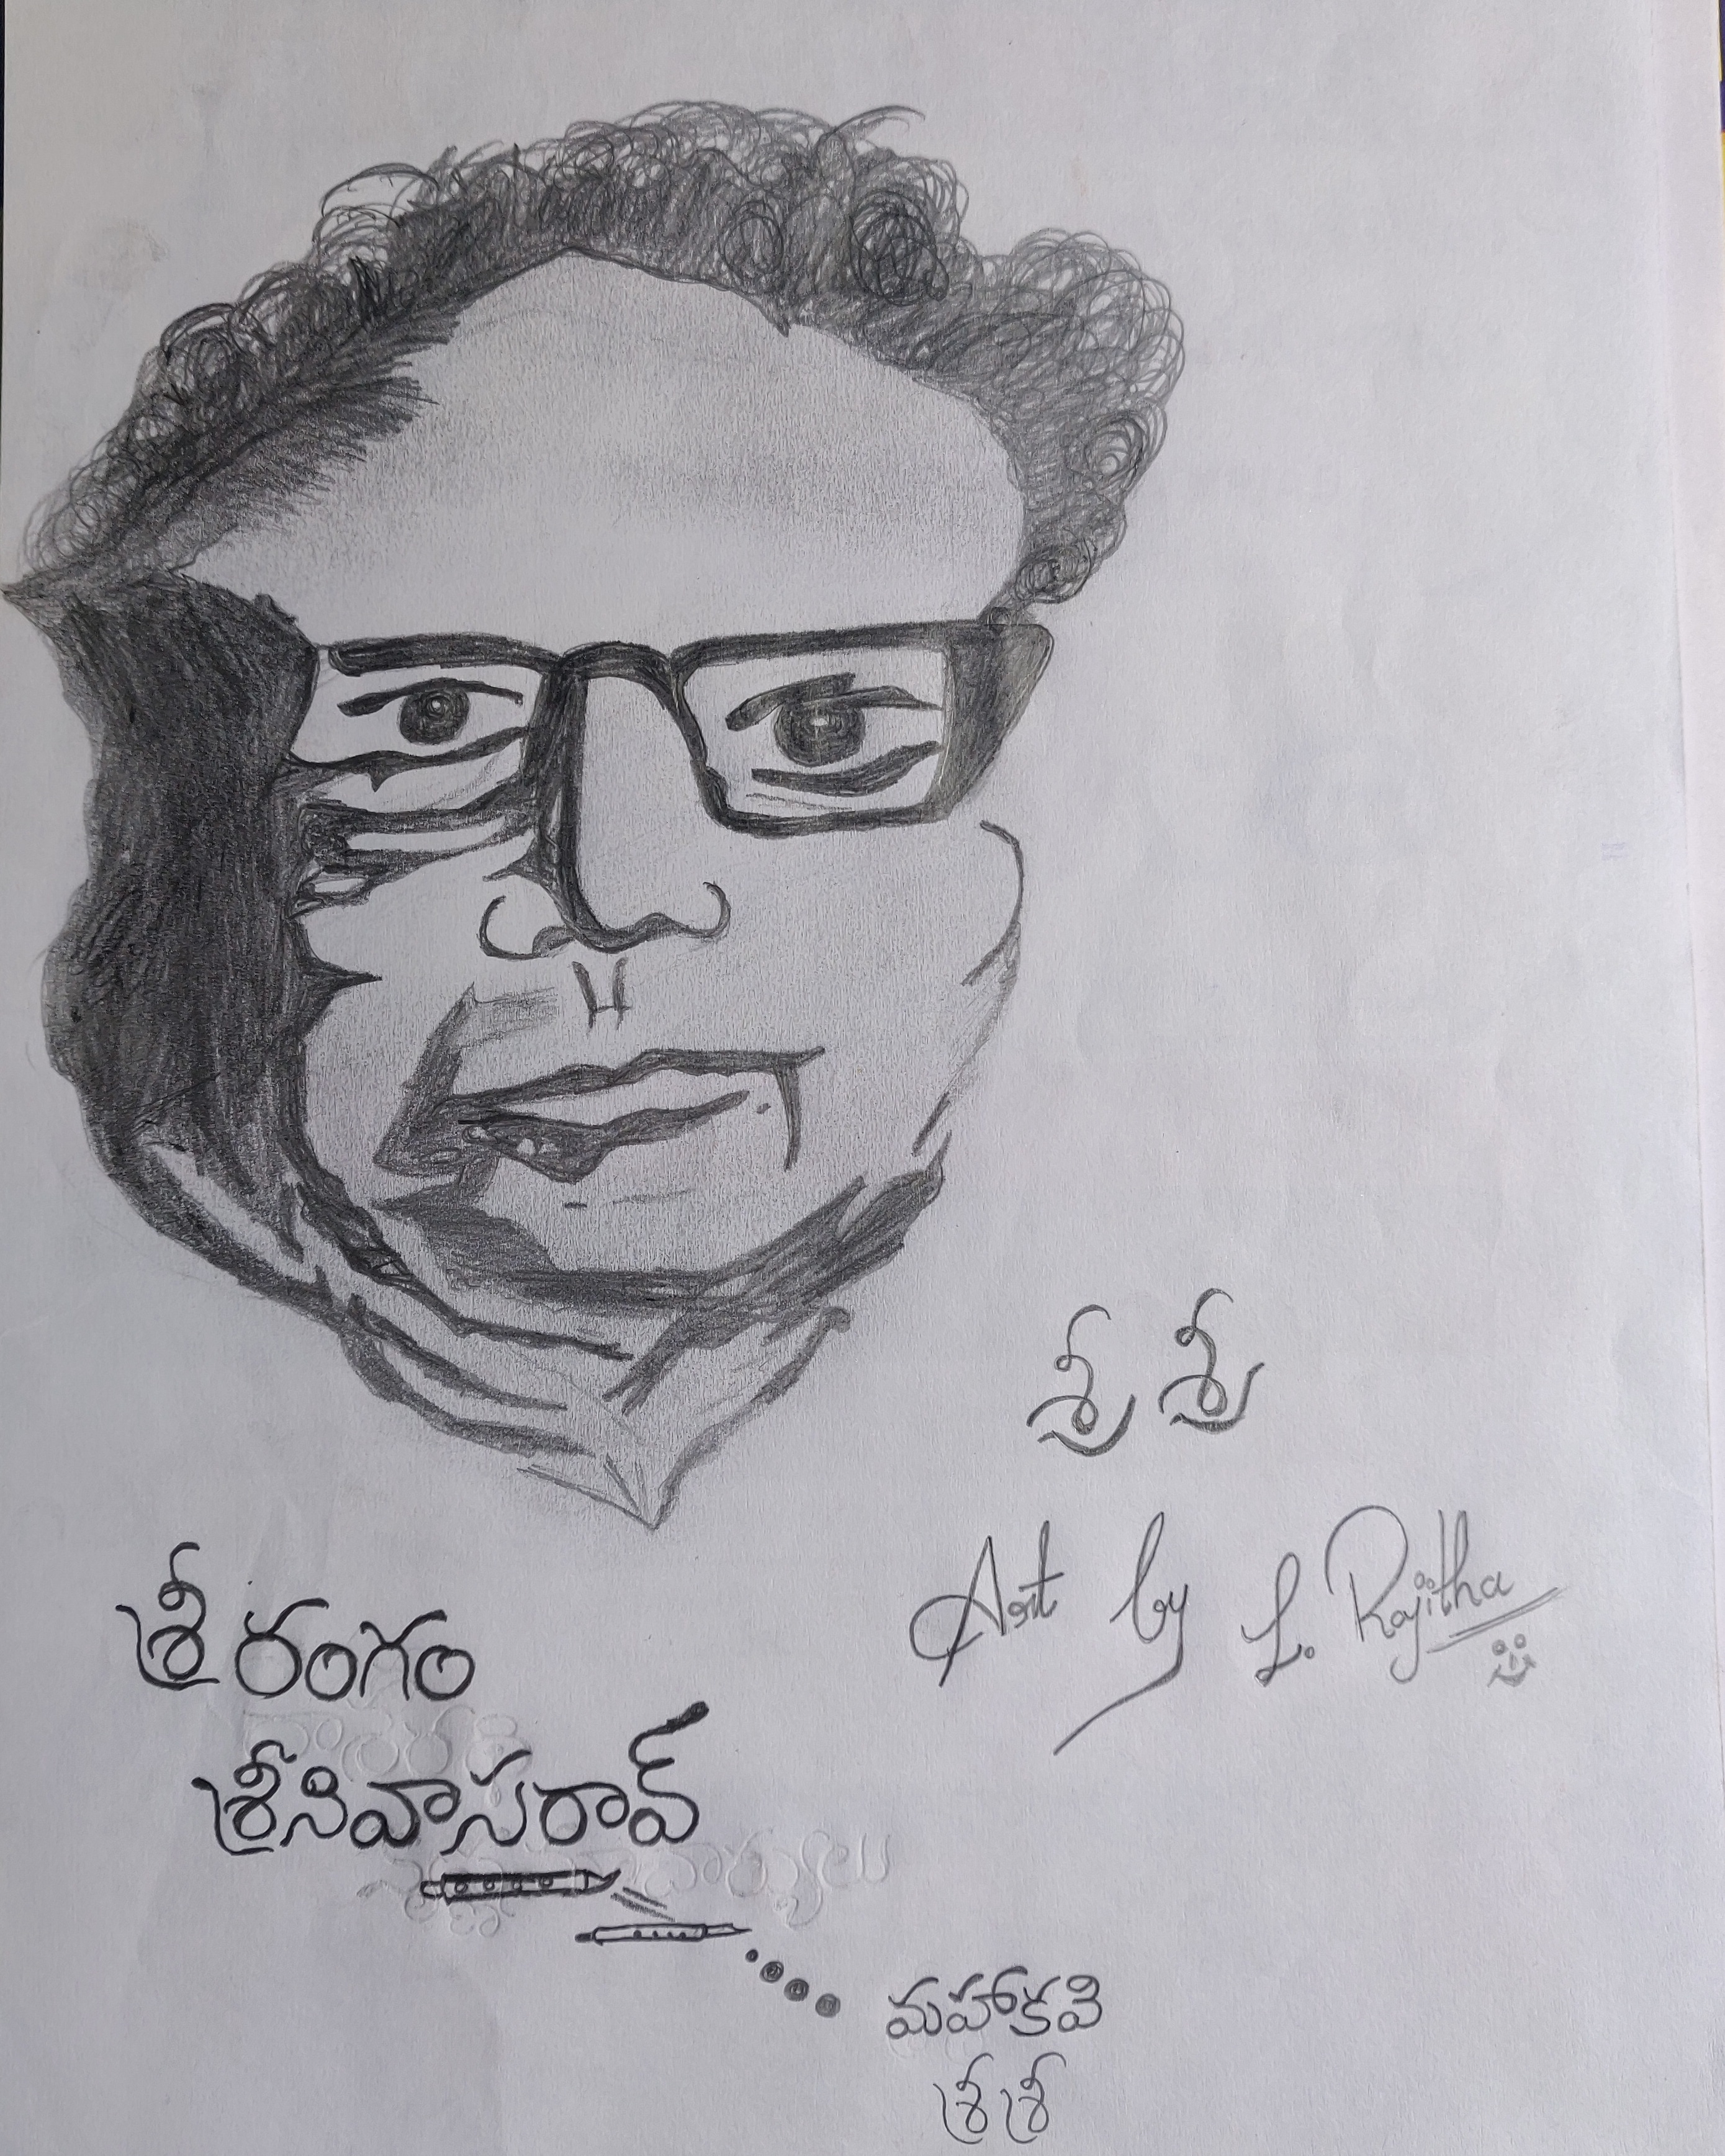 శ్రీ శ్రీ
Art by L. Rajitha
శ్రీ రంగం
శ్రీనివాసరావ్
మహాకవి
శ్రీశ్రీ